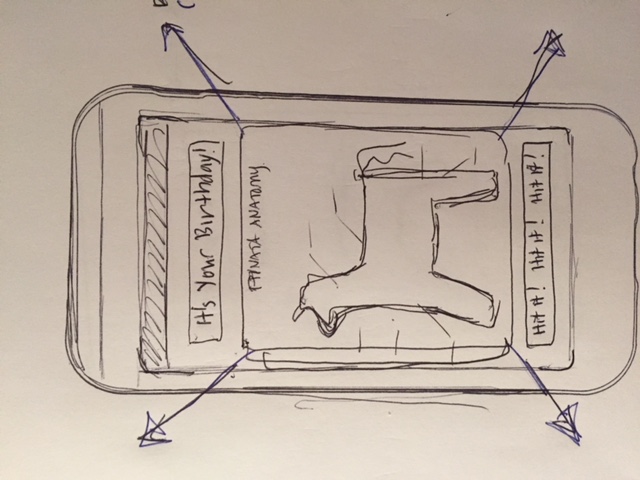 It's Your Birthday!
PIÑATA ANATOMY
Hit it! Hit it! Hit it!